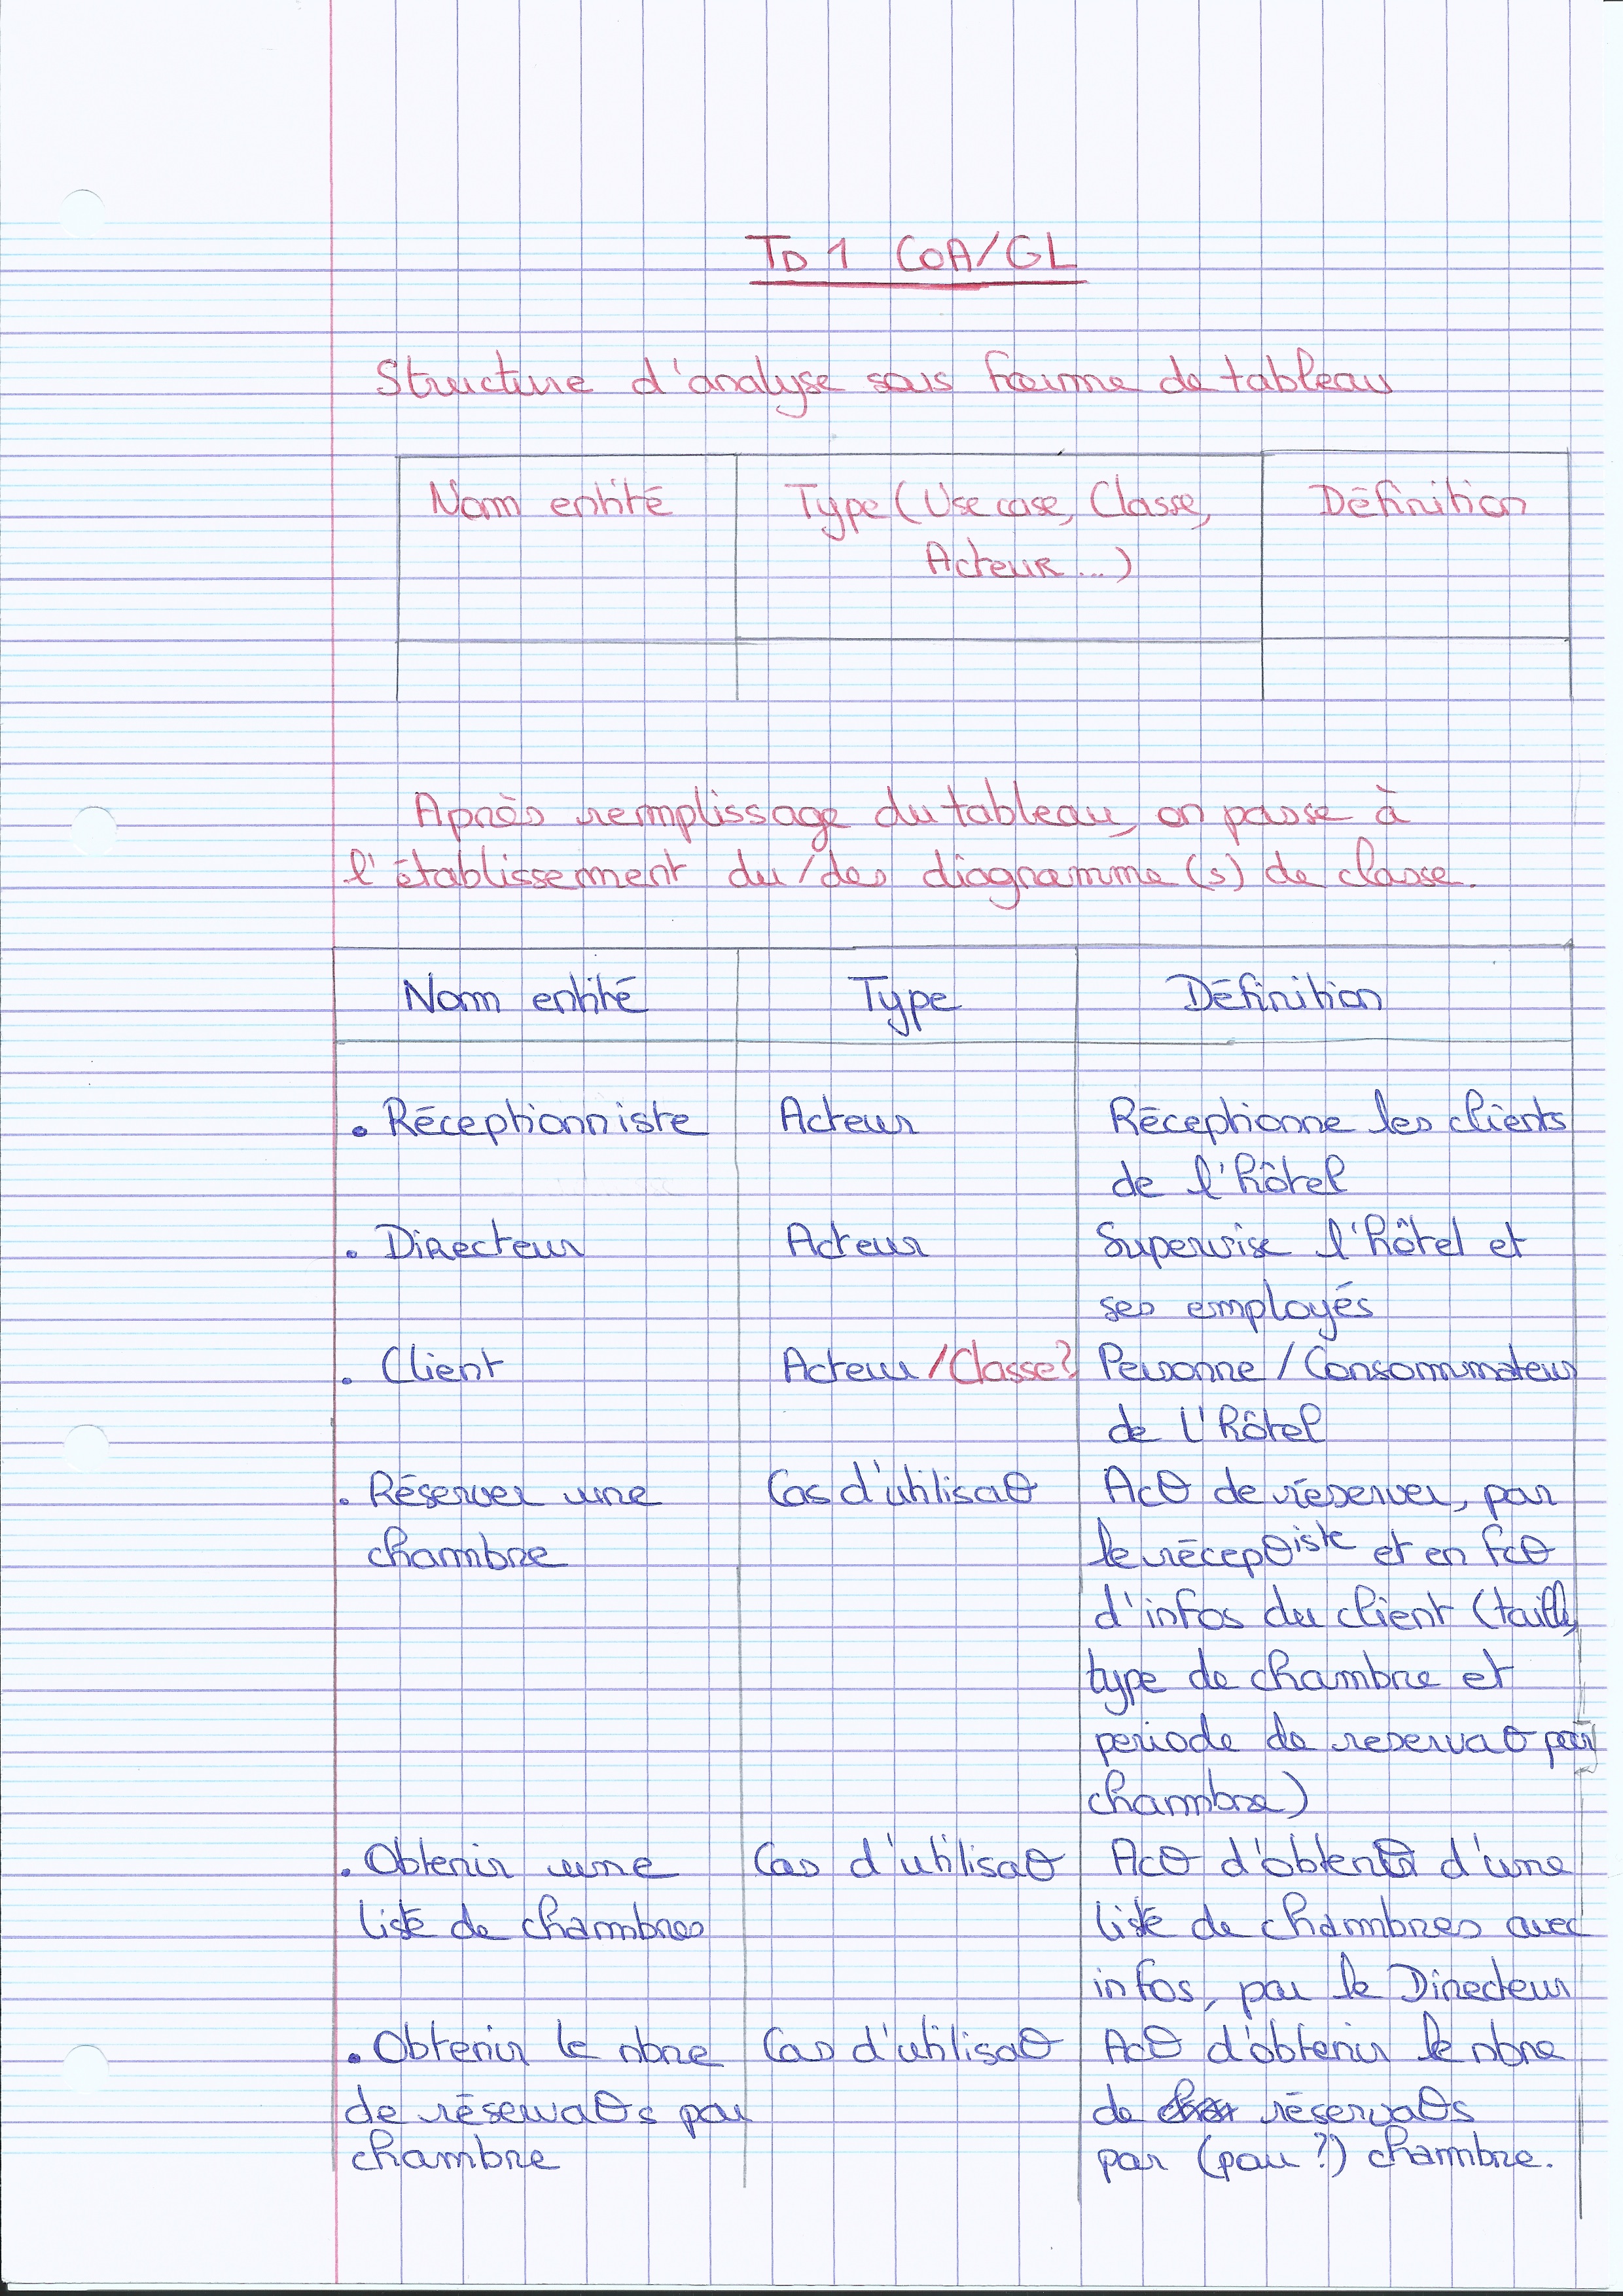 TD 1 COA/GL
Structure d'analyse sous forme de tableau
Nom entité Type (Use case, Classe, Définition
Acteur ...)
Après remplissage du tableau, on passe à
l'établissement du/des diagramme(s) de classe.
Nom entité Type Définition
. Réceptionniste Acteur Réceptionne les clients
de l'hôtel
. Directeur Acteur Supervise l'hôtel et
ses employés
. Client Acteur /Classe? Personne / Consommateur
de l'hôtel
. Réserver une Cas d'utilisaθ Acθ de réserver, par
chambre le récepθiste et en fcθ
d'infos du client (taille,
type de chambre et
periode de reservaθ par
chambre)
. Obtenir une Cas d'utilisaθ Acθ d'obtenθ d'une
liste de chambres liste de chambres avec
infos, par le Directeur
. Obtenir le nbre Cas d'utilisaθ Acθ d'obtenir le nbre
de réservaθs par de réservaθs
chambre par (pour ?) chambre.